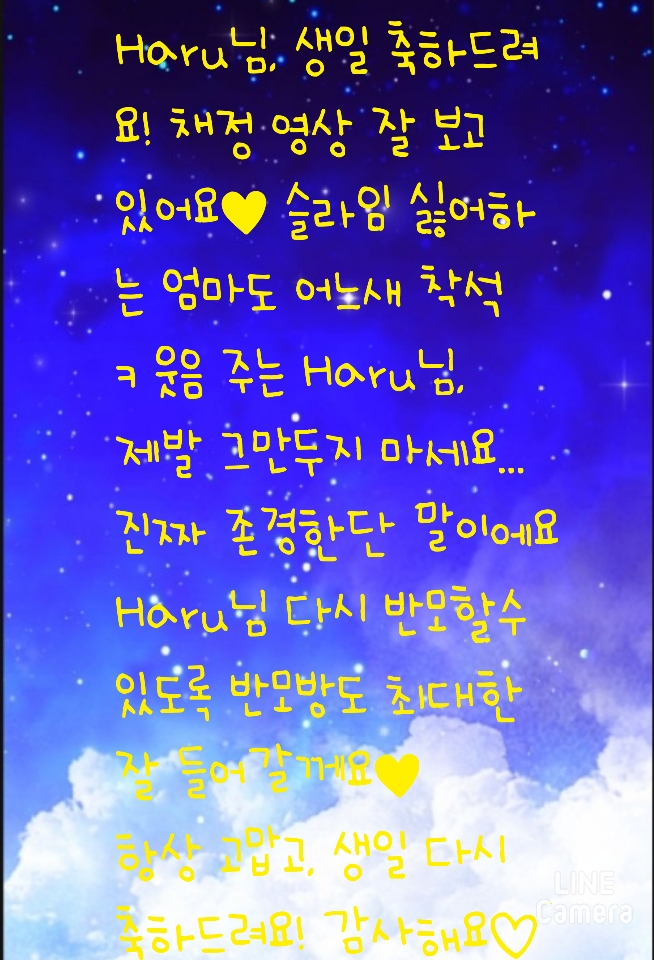 Haru님, 생일 축하드려
요! 채정 영상 잘 보고
있어요♥ 슬라임 싫어하
는 엄마도 어느새 착석
ㅋ 웃음 주는 Haru님,
제발 그만두지 마세요...
진짜 존경한단 말이에요
Haru님 다시 반모할수
있도록 반모방도 최대한
잘 들어갈께요♥
항상 고맙고, 생일 다시
축하드려요! 감사해요♡
LINE
Camera